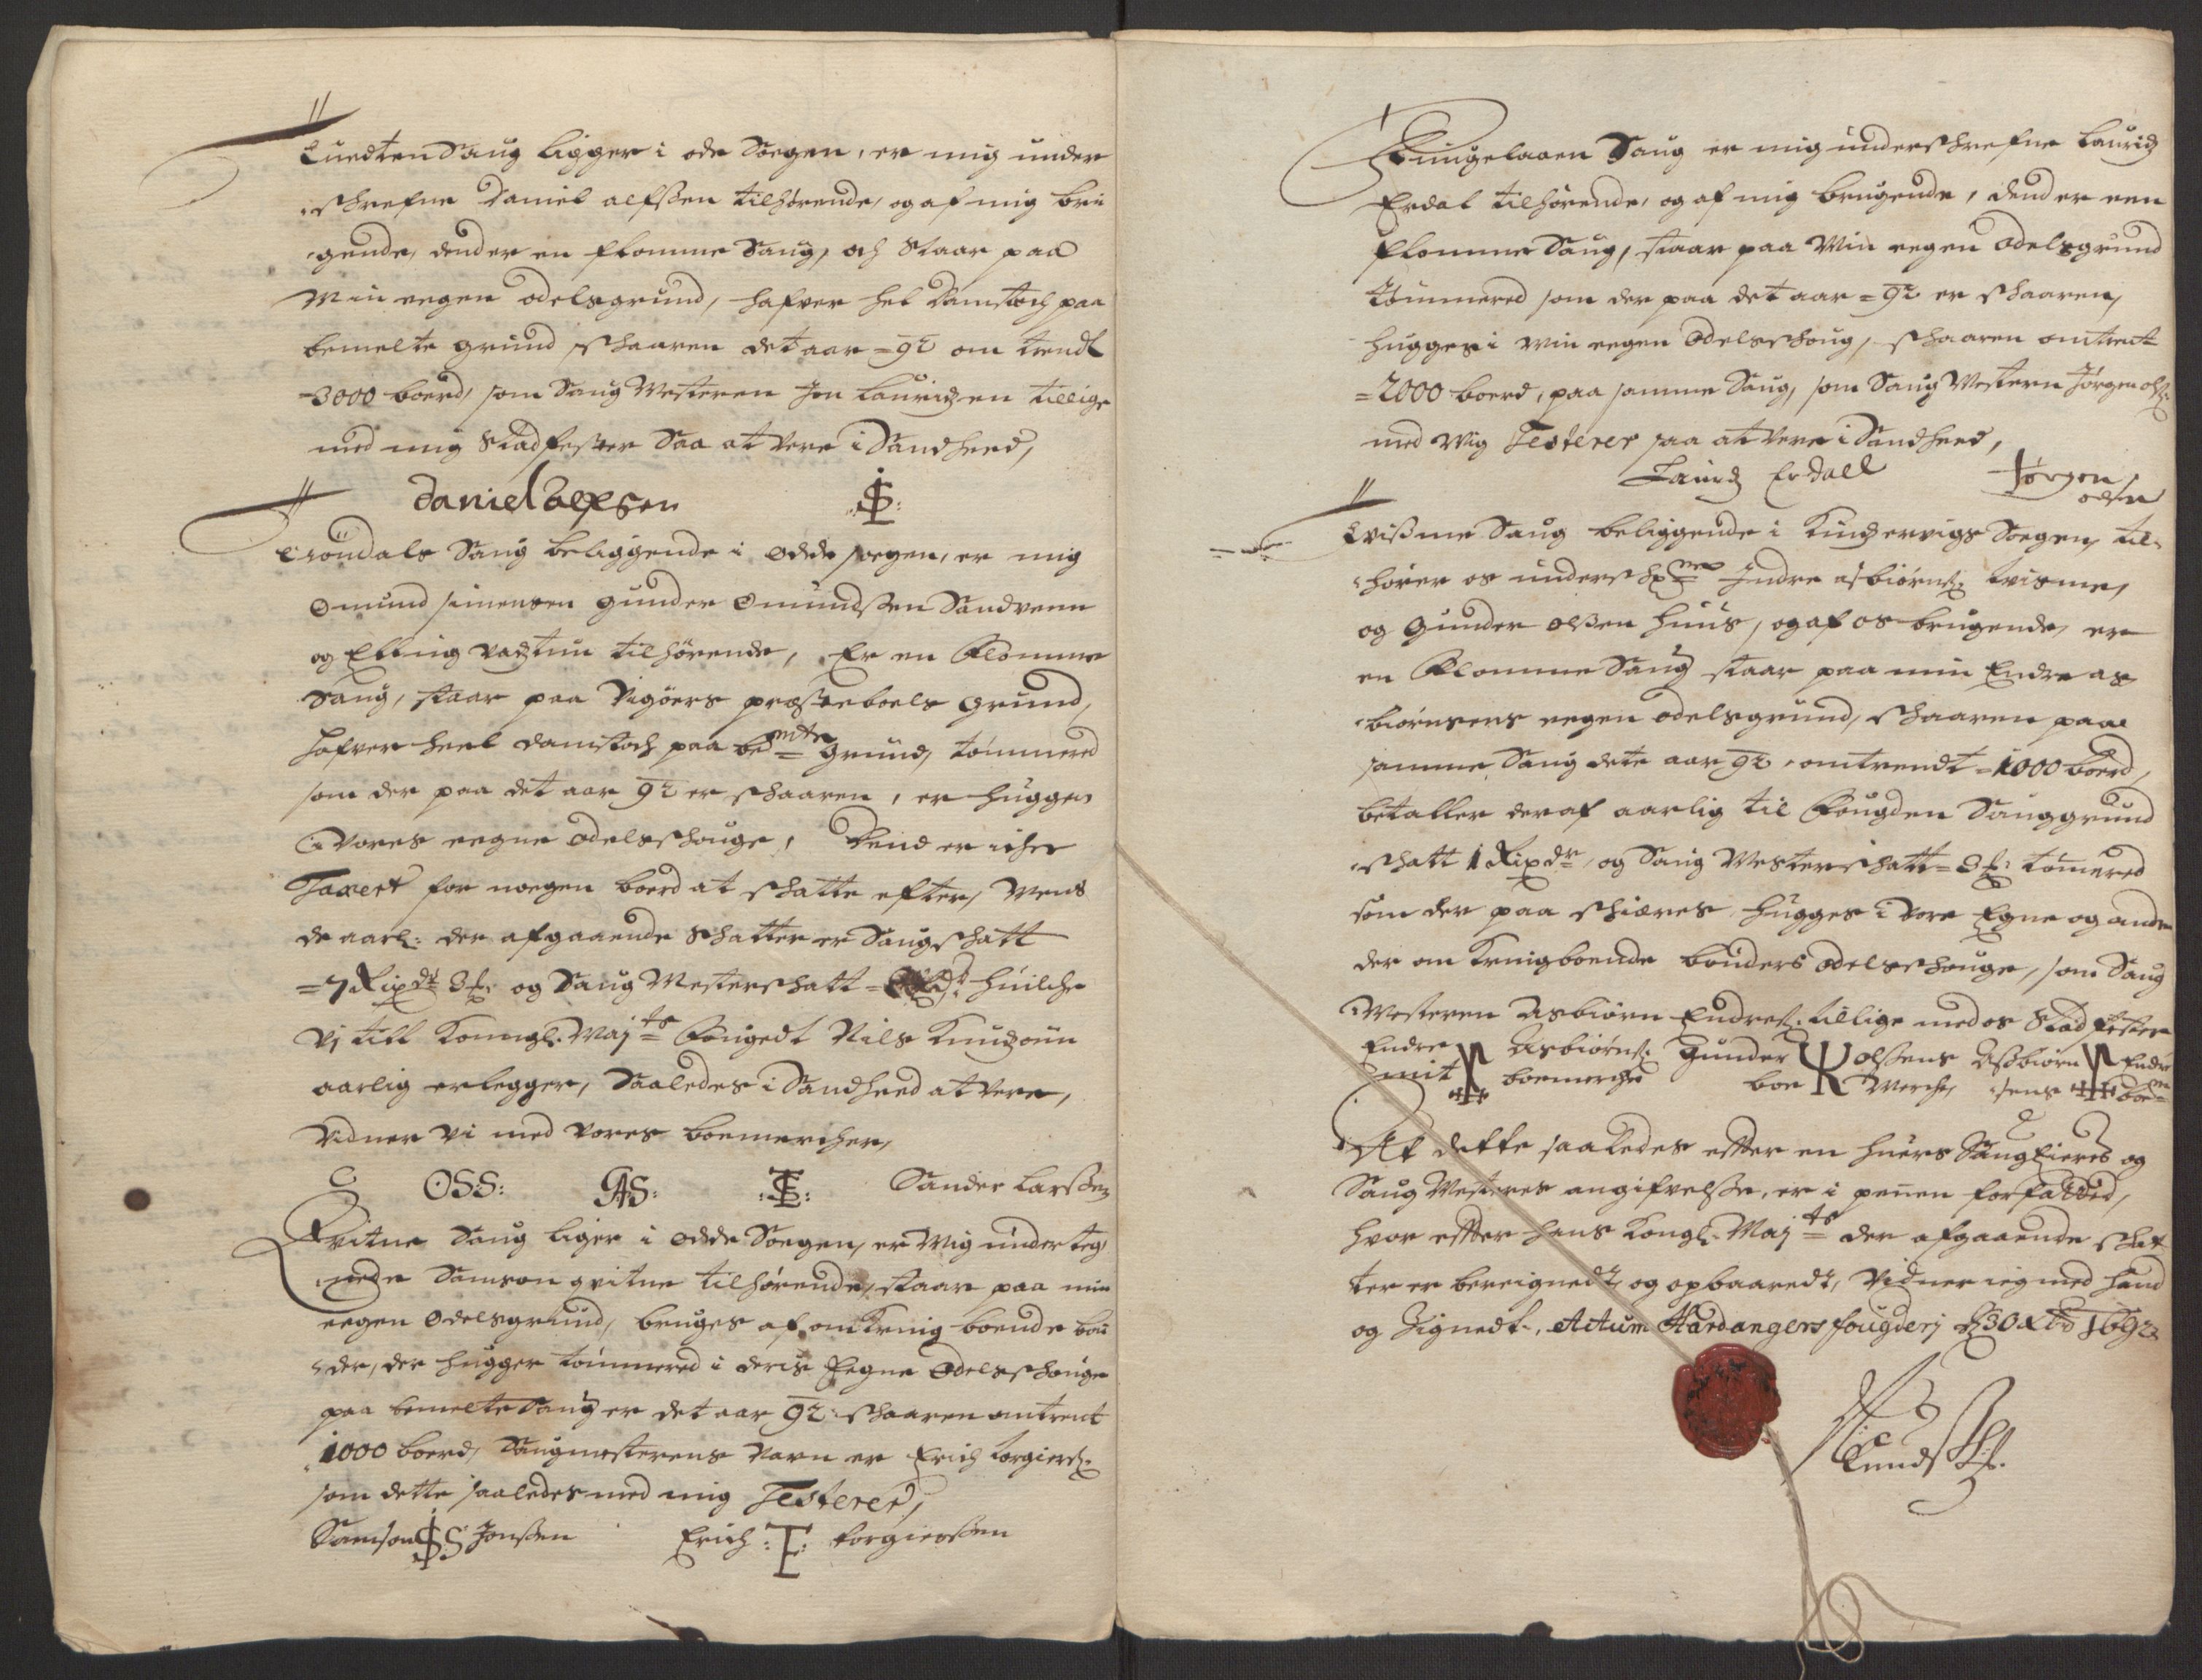 Tuedten Saug ligger i ode Soegen, er mig under
schrefne Daniel alfssen tilhørende, og af mig bru
gende, dend er en flomme Saug, och Staar paa
Min eegen odelsgrund, hafver hel Damstoch paa
bemelte grund, schaaren det aar =92 om trendt
=3000 boerd, som Saug Mesteren Jon Lauridzen tillige
med mig Stadfester Saa at vere i Sandheed,
Daniel allfsen
Saug beliggende i Odde soegen, er mig
Omund simensen gunder Omundssen Sandvenn
og Elling tilhørende, Er en flomme
Saug, staar paa Vigöers præsteboels grund,
hafver heel damstoch paa bemte grund, tömmered
som der paa det aar 92 er schaaren, er hugged
i Vores eegne odelsschouge, Dend er icke
Taxert for noegen boerd at schatte efter, Mens
de aarl: der afgaaende schatter er Saugschatt
=7 Rixdr og Saug Mesterschatt = huilche
Vj till Konngl. Maytz fougedt Nils Knudzöun
aarlig erlegger, Saaledes i Sandheed at vere,
Vidner Vi med vores boemercher,
OSS: GAS: Sander Larssen
Qvitne Saug liger i Odde Soegen, er Mig underteg
nede Samson qvitne tilhørende, staar paa min
eegen Odelsgrund, bruges af omkring boende bön
der, der hugger tömmered i deris Eegne Odelsschouge
paa bemelte Saug er det aar 92: schaaren omtrent
1000 boerd, Saugmesterens Navn er Erich torgiers:
som dette saaledes med mig Testerer,
Samson S Jonssen Erich :T: torgierssen
Saug er mig underschrefne Lauridz
Erdal tilhørende, og af mig brugende, dend er een
flomme Saug, staar paa Min eegen odelsgrund
Tömmered som der paa det aar =92 er schaaren,
hugges i min eegen Odelsschoug, schaaren omtrent
=2000 boerd, paa samme Saug, som Saug Mestern Jörgen ols:
med Mig Testerer saa at vere i Sandheed,
Lauridz Erdall Jörgen
olsen
Tvissme Saug beliggende i Kindzervigs Soegen, til
hörer os underschrne Indre asbiörns: tvisme,
og gunder olssen huus, og af os brugende, er
en flomme Saug staar paa min Endre as
biörnsens eegen odelsgrund, schaaren paa
samme Saug dete aar 92, omtrendt =1000 boerd,
betaller deraf aarlig til Fougden Sauggrund
schatt 1 Rixdr, og Saug Mesterschatt =3 tömered
som der paa schiæres hugges i Vore Egne og andre
der om kringboende bönders odelsschouge, som Saug
Mesteren Asbiörn Endres: tillige med os Stadfester
Endre Asbiörns: gunder olssens Assbiörn Endre
mit boemerche boe Merche, sens boem
At dette saaledes effter en huers Saug Eieres og
Saug Mesteres angifvelsse, er i pennen forfatted,
hvor effter hans Kongl: Maytz der afgaaende schat
ter er bereignedt, og opbaaredt, Vidner ieg med haand
og Zignedt, Actum Hardangers fougderj d 30 xbr 1692
Knudz